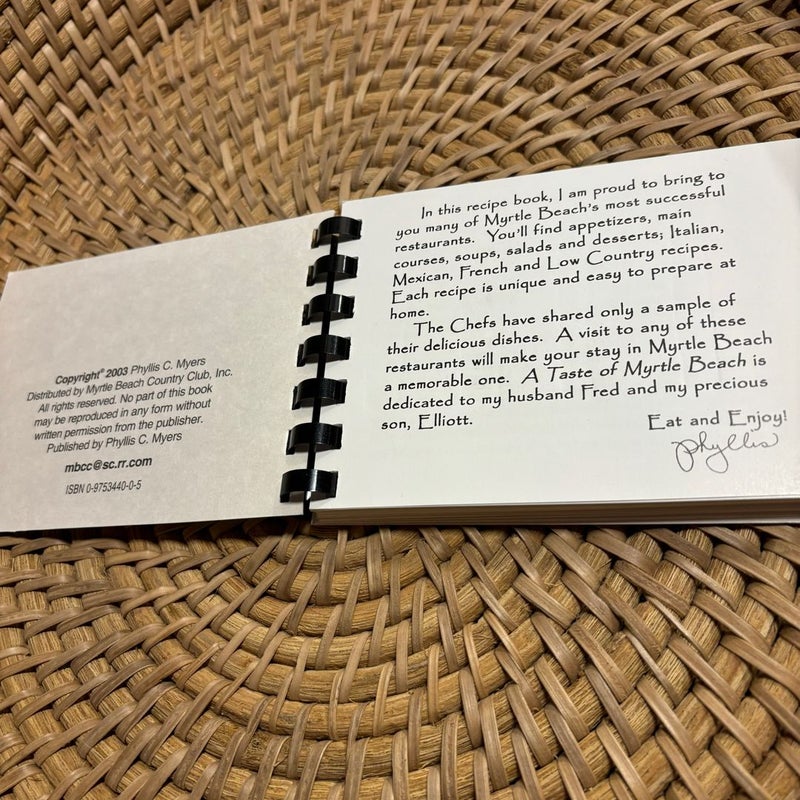 Copyright® 2003 Phyllis C. Myers
Distributed by Myrtle Beach Country Club, Inc.
All rights reserved. No part of this book
may be reproduced in any form without
written permission from the publisher.
Published by Phyllis C. Myers
mbcc@sc.rr.com
ISBN 0-9753440-0-5
In this recipe book, I am proud to bring to
you many of Myrtle Beach's most successful
restaurants. You'll find appetizers, main
courses, soups, salads and desserts; Italian,
Mexican, French and Low Country recipes.
Each recipe is unique and easy to prepare at
home.
The Chefs have shared only a sample of
their delicious dishes. A visit to any of these
restaurants will make your stay in Myrtle Beach
a memorable one. A Taste of Myrtle Beach is
dedicated to my husband Fred and my precious
son, Elliott.
Eat and Enjoy!
Phyllis